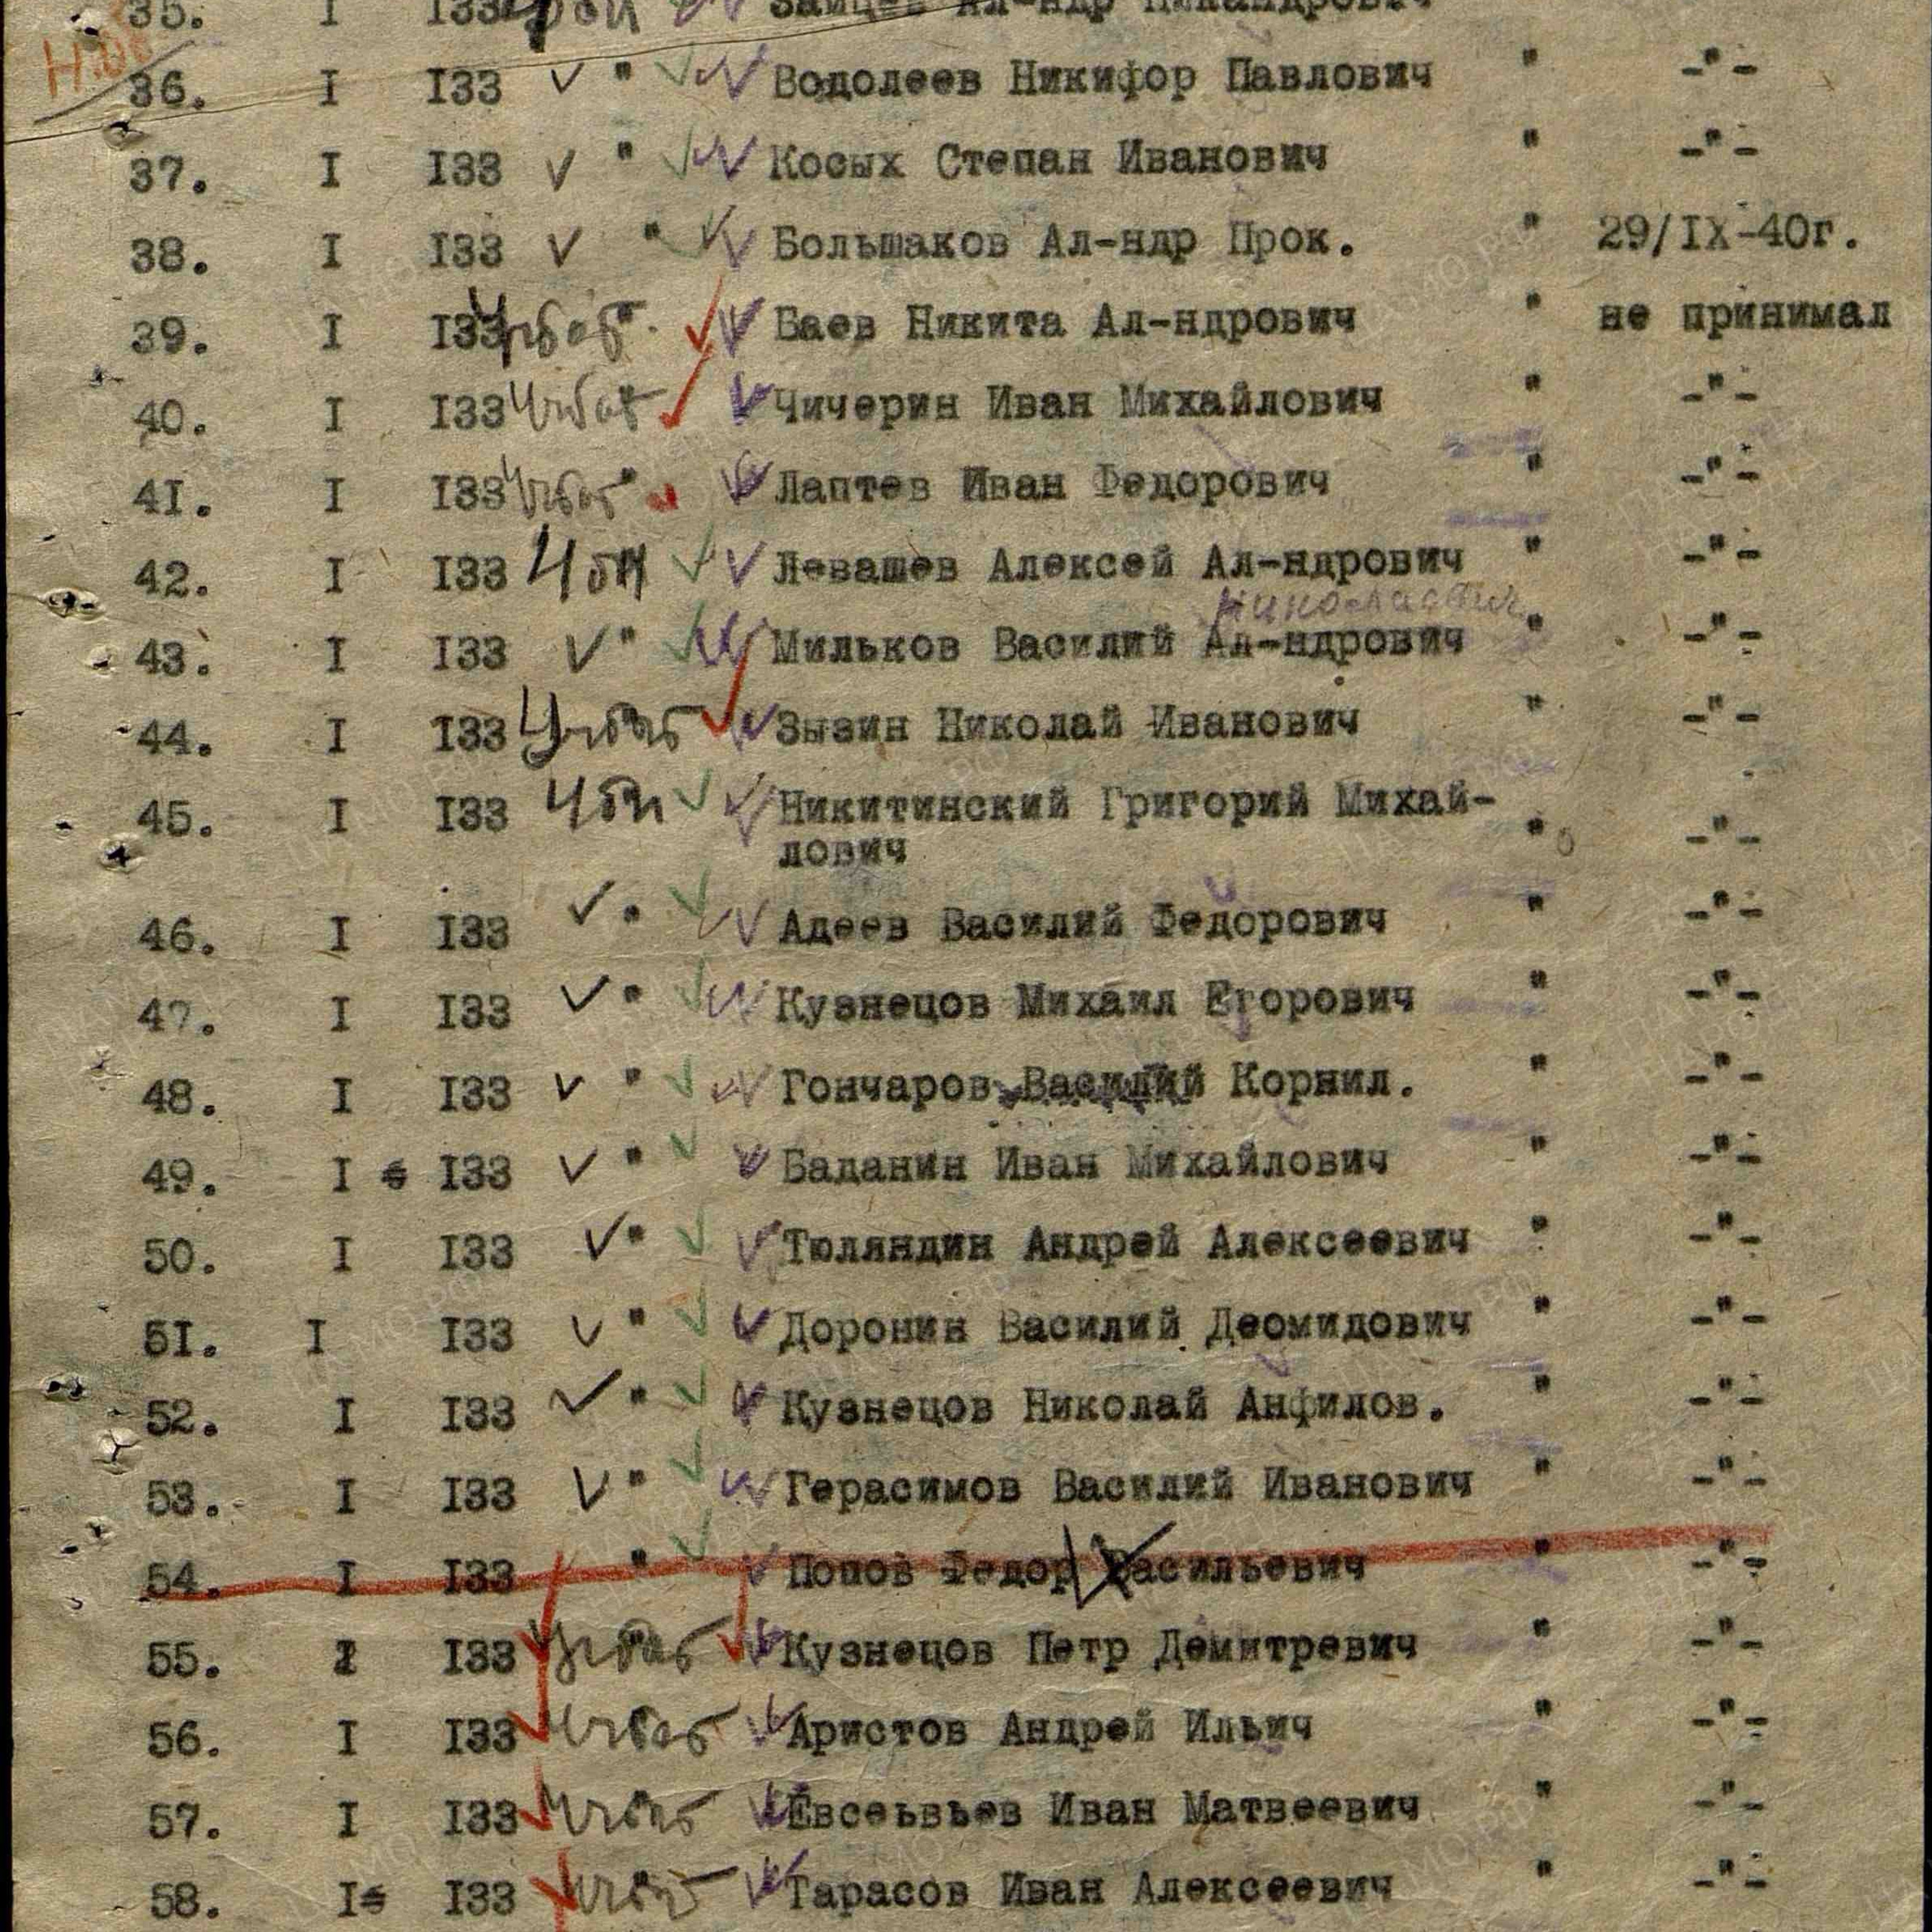 35. I 133 Зайцев Ал-ндр Никандрович
36. I 133 " Водолеев Никифор Павлович " -"-
37. I 133 " Косых Степан Иванович " -"-
38. I 133 " Большаков Ал-ндр Прок. " 29/IX-40г.
39. I 133 " Баев Никита Ал-ндрович " не принимал
40. I 133 " Чичерин Иван Михайлович " -"-
41. I 133 " Лаптев Иван Федорович " -"-
42. I 133 Левашев Алексей Ал-ндрович " -"-
Николаевич
43. I 133 " Мильков Василий Ал-ндрович " -"-
44. I 133 " Зызин Николай Иванович " -"-
45. I 133 Никитинский Григорий Михай-
лович " -"-
46. I 133 " Адеев Василий Федорович " -"-
47. I 133 " Кузнецов Михаил Егорович " -"-
48. I 133 " Гончаров Василий Корнил. " -"-
49. I 133 " Баданин Иван Михайлович " -"-
50. I 133 " Тюляндин Андрей Алексеевич " -"-
51. I 133 " Доронин Василий Деомидович " -"-
52. I 133 " Кузнецов Николай Анфилов. " -"-
53. I 133 " Герасимов Василий Иванович " -"-
54. I 133 " Попов Федор Васильевич " -"-
55. I 133 " Кузнецов Петр Демитревич " -"-
56. I 133 " Аристов Андрей Ильич " -"-
57. I 133 " Евсеьвьев Иван Матвеевич " -"-
58. I 133 " Тарасов Иван Алексеевич " -"-